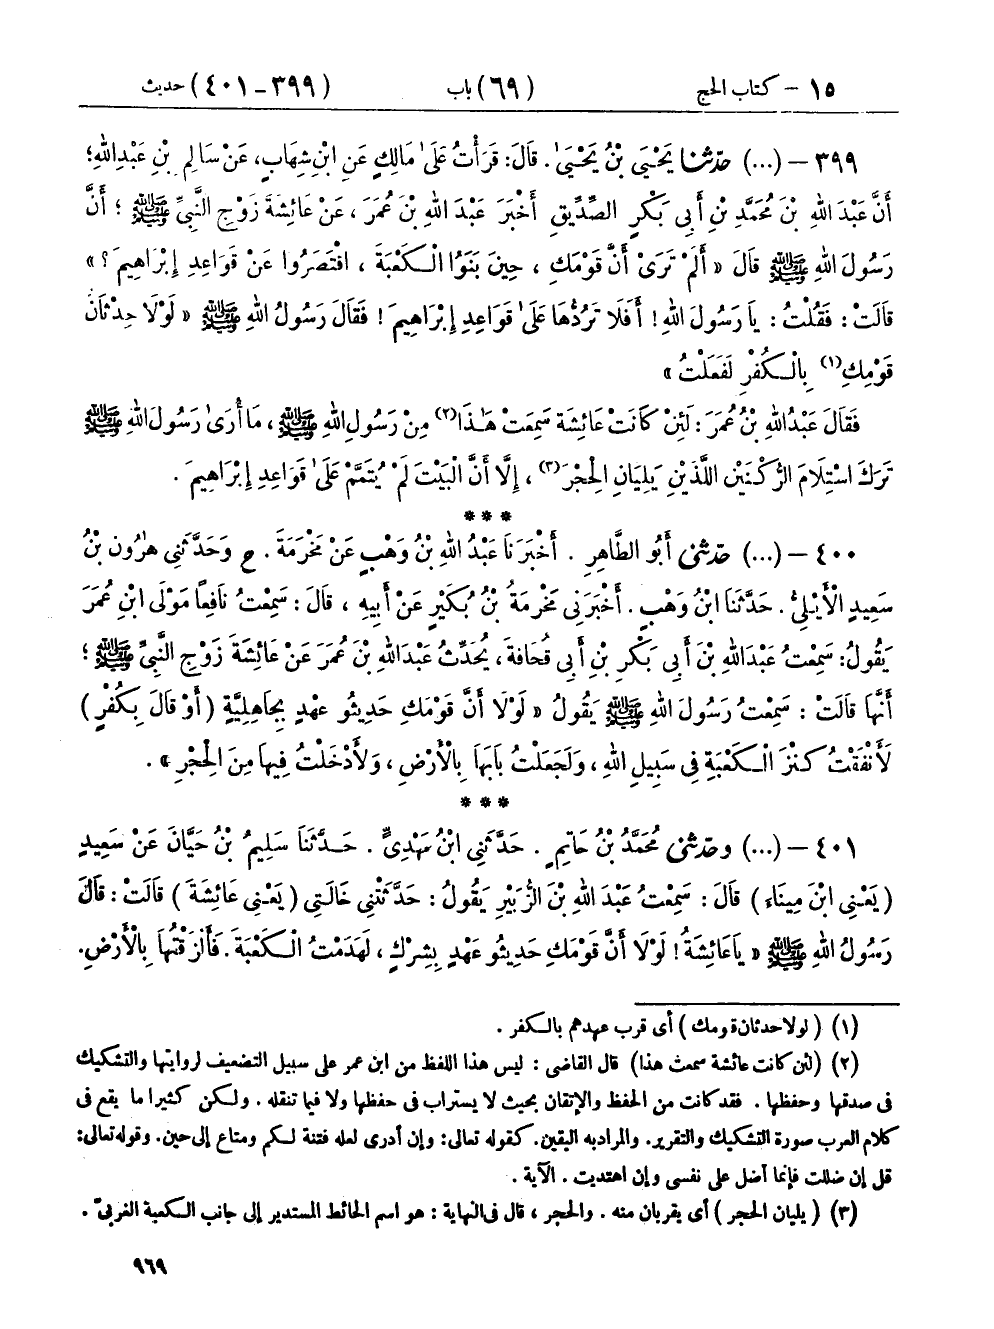 ١٥ – كتاب الحج (٦٩) باب (٣٩٩-٤٠١) حديث
٣٩٩ – (...) حدّثنا يَحْيَىٰ بْنُ يَحْيَىٰ. قَالَ: قَرَأْتُ عَلَىٰ مَالِكٍ عَنِ ابْنِ شِهَابٍ، عَنْ سَالِمِ بْنِ عَبْدِ اللهِ؛
أَنَّ عَبْدَ اللهِ بْنَ مُحَمَّدِ بْنِ أَبِي بَكْرٍ الصِّدِّيقِ أَخْبَرَ عَبْدَ اللهِ بْنَ عُمَرَ، عَنْ عَائِشَةَ زَوْجِ النَّبِيِّ ﷺ؛ أَنَّ
رَسُولَ اللهِ ﷺ قَالَ « أَلَمْ تَرَىْ أَنَّ قَوْمَكِ، حِينَ بَنَوُا الْكَعْبَةَ، اقْتَصَرُوا عَنْ قَوَاعِدِ إِبْرَاهِيمَ؟ »
قَالَتْ: فَقُلْتُ: يَا رَسُولَ اللهِ! أَفَلَا تَرُدُّهَا عَلَىٰ قَوَاعِدِ إِبْرَاهِيمَ! فَقَالَ رَسُولُ اللهِ ﷺ « لَوْلَا حِدْثَانُ
قَوْمِكِ(١) بِالْكُفْرِ لَفَعَلْتُ »
فَقَالَ عَبْدُ اللهِ بْنُ عُمَرَ: لَئِنْ كَانَتْ عَائِشَةُ سَمِعَتْ هَٰذَا(٢) مِنْ رَسُولِ اللهِ ﷺ، مَا أُرَىٰ رَسُولَ اللهِ ﷺ
تَرَكَ اسْتِلَامَ الرُّكْنَيْنِ اللَّذَيْنِ يَلِيَانِ الْحِجْرَ(٣)، إِلَّا أَنَّ الْبَيْتَ لَمْ يُتَمَّمْ عَلَىٰ قَوَاعِدِ إِبْرَاهِيمَ.
* * *
٤٠٠ – (...) حدّثنى أَبُو الطَّاهِرِ. أَخْبَرَنَا عَبْدُ اللهِ بْنُ وَهْبٍ عَنْ مَخْرَمَةَ. ح وَحَدَّثَنِي هٰرُونُ بْنُ
سَعِيدٍ الْأَيْلِيُّ. حَدَّثَنَا ابْنُ وَهْبٍ. أَخْبَرَنِي مَخْرَمَةُ بْنُ بُكَيْرٍ عَنْ أَبِيهِ، قَالَ: سَمِعْتُ نَافِعًا مَوْلَى ابْنِ عُمَرَ
يَقُولُ: سَمِعْتُ عَبْدَ اللهِ بْنَ أَبِي بَكْرِ بْنِ أَبِي قُحَافَةَ، يُحَدِّثُ عَبْدَ اللهِ بْنَ عُمَرَ عَنْ عَائِشَةَ زَوْجِ النَّبِيِّ ﷺ؛
أَنَّهَا قَالَتْ: سَمِعْتُ رَسُولَ اللهِ ﷺ يَقُولُ « لَوْلَا أَنَّ قَوْمَكِ حَدِيثُو عَهْدٍ بِجَاهِلِيَّةٍ ( أَوْ قَالَ بِكُفْرٍ )
لَأَنْفَقْتُ كَنْزَ الْكَعْبَةِ فِي سَبِيلِ اللهِ، وَلَجَعَلْتُ بَابَهَا بِالْأَرْضِ، وَلَأَدْخَلْتُ فِيهَا مِنَ الْحِجْرِ ».
* * *
٤٠١ – (...) وحدّثنى مُحَمَّدُ بْنُ حَاتِمٍ. حَدَّثَنِي ابْنُ مَهْدِيٍّ. حَدَّثَنَا سَلِيمُ بْنُ حَيَّانَ عَنْ سَعِيدٍ
( يَعْنِي ابْنَ مِينَاءَ ) قَالَ: سَمِعْتُ عَبْدَ اللهِ بْنَ الزُّبَيْرِ يَقُولُ: حَدَّثَتْنِي خَالَتِي ( يَعْنِي عَائِشَةَ ) قَالَتْ: قَالَ
رَسُولُ اللهِ ﷺ « يَا عَائِشَةُ! لَوْلَا أَنَّ قَوْمَكِ حَدِيثُو عَهْدٍ بِشِرْكٍ، لَهَدَمْتُ الْكَعْبَةَ. فَأَلْزَقْتُهَا بِالْأَرْضِ.
(١) ( لولا حدثان قومك ) أى قرب عهدهم بالكفر.
(٢) (لئن كانت عائشة سمعت هذا) قال القاضى: ليس هذا اللفظ من ابن عمر على سبيل التضعيف لروايتها والتشكيك
فى صدقها وحفظها. فقد كانت من الحفظ والإتقان بحيث لا يستراب فى حفظها ولا فيما تنقله. ولكن كثيرا ما يقع فى
كلام العرب صورة التشكيك والتقرير. والمراد به اليقين. كقوله تعالى: وإن أدرى لعله فتنة لكم ومتاع إلى حين. وقوله تعالى:
قل إن ضللت فإنما أضل على نفسى وإن اهتديت. الآية.
(٣) ( يليان الحجر ) أى يقربان منه. والحجر، قال فى النهاية: هو اسم الحائط المستدير إلى جانب الكعبة الغربىّ.
٩٦٩